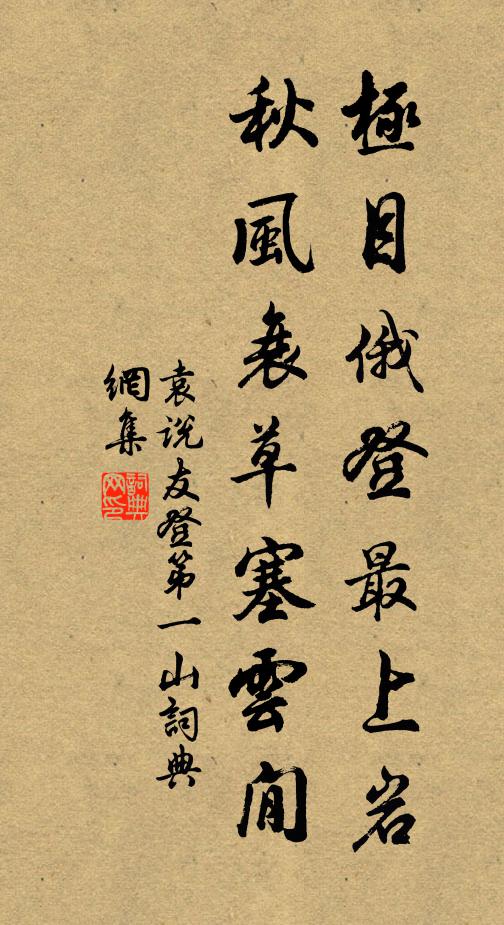 極目俄登最上岩
秋風衰草塞雲閒
袁説友登第一山詞典
網集
詞典
网印